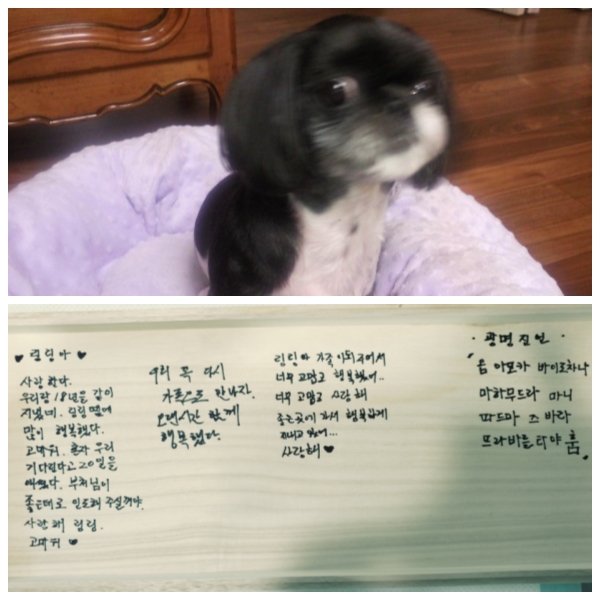 ♥ 링링아 ♥
사랑한다.
우리랑 18년을 같이
지냈네. 링링 땜에
많이 행복했다.
고마워. 혼자 우리
기다린다고 20일을
애썼다. 부처님이
좋은데로 인도해 주실꺼야.
사랑해 링링.
고마워 ♥
우리 꼭 다시
가족으로 만나자.
오랜시간 함께
행복했다.
링링아 가족이되어줘서
너무 고맙고 행복했어..
너무 고맙고 사랑해
좋은곳에 가서 행복하게
지내고 있어...
사랑해 ♥
· 광명진언 ·
"옴 아모카 바이로차나
마하무드라 마니
파드마 즈바라
프라바를타야 훔"